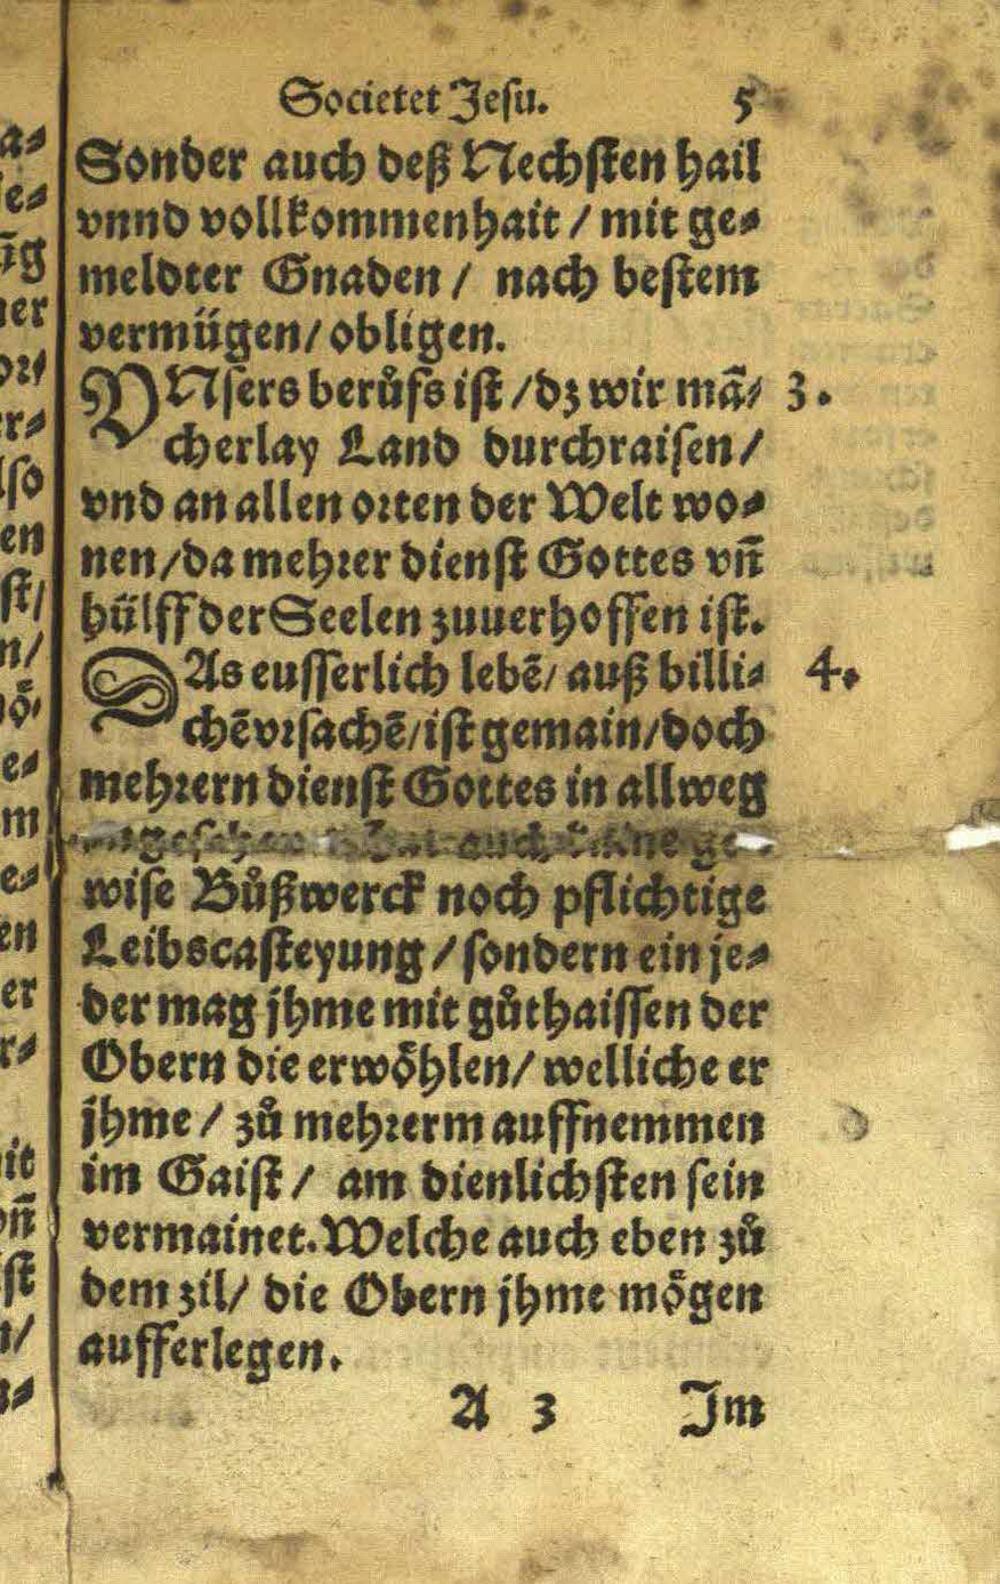 Societet Jesu. 5
Sonder auch deß Nechsten hail
vnnd vollkommenhait / mit ge⸗
meldter Gnaden / nach bestem
vermügen / obligen.
VNsers berůfs ist / dz wir mã⸗ 3.
cherlay Land durchraisen /
vnd an allen orten der Welt wo⸗
nen / da mehrer dienst Gottes vñ
hülff der Seelen zuuerhoffen ist.
DAs eusserlich lebẽ / auß billi⸗ 4.
chẽ vrsachẽ / ist gemain / doch
mehrern dienst Gottes in allweg
auch
wise Bůßwerck noch pflichtige
Leibscasteyung / sondern ein je⸗
der mag jhme mit gůthaissen der
Obern die erwöhlen / welliche er
jhme / zů mehrerm auffnemmen
im Gaist / am dienlichsten sein
vermainet. Welche auch eben zů
dem zil / die Obern jhme mögen
aufferlegen.
A 3 Im